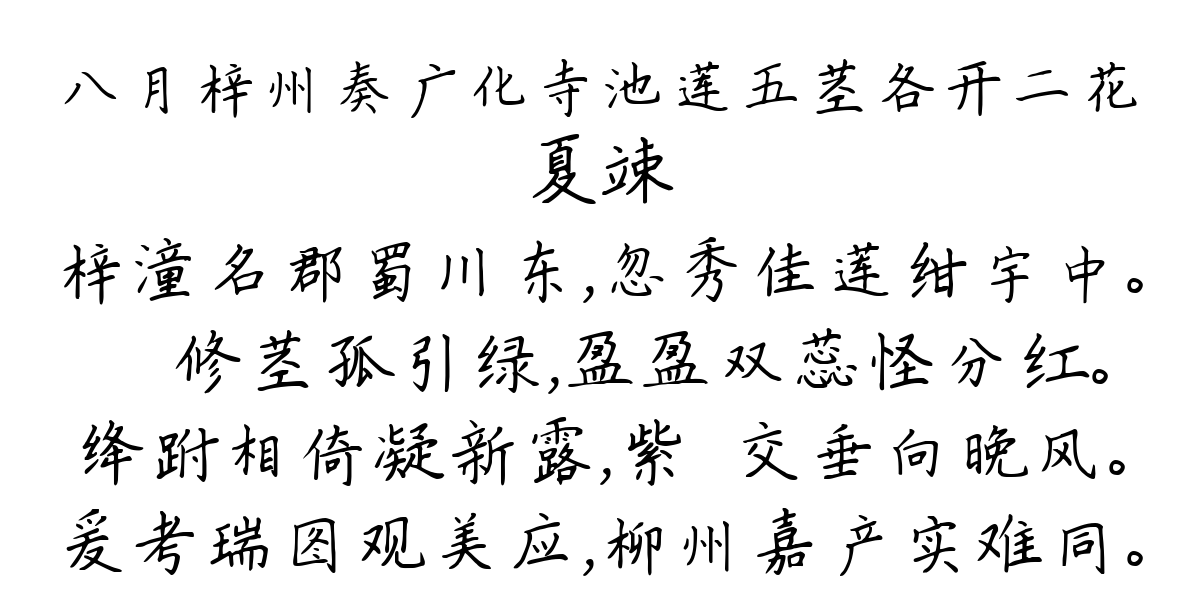 八月梓州奏广化寺池莲五茎各开二花
夏竦
梓潼名郡蜀川东,忽秀佳莲绀宇中。
修茎孤引绿,盈盈双蕊怪分红。
绛跗相倚凝新露,紫 交垂向晚风。
爰考瑞图观美应,柳州嘉产实难同。